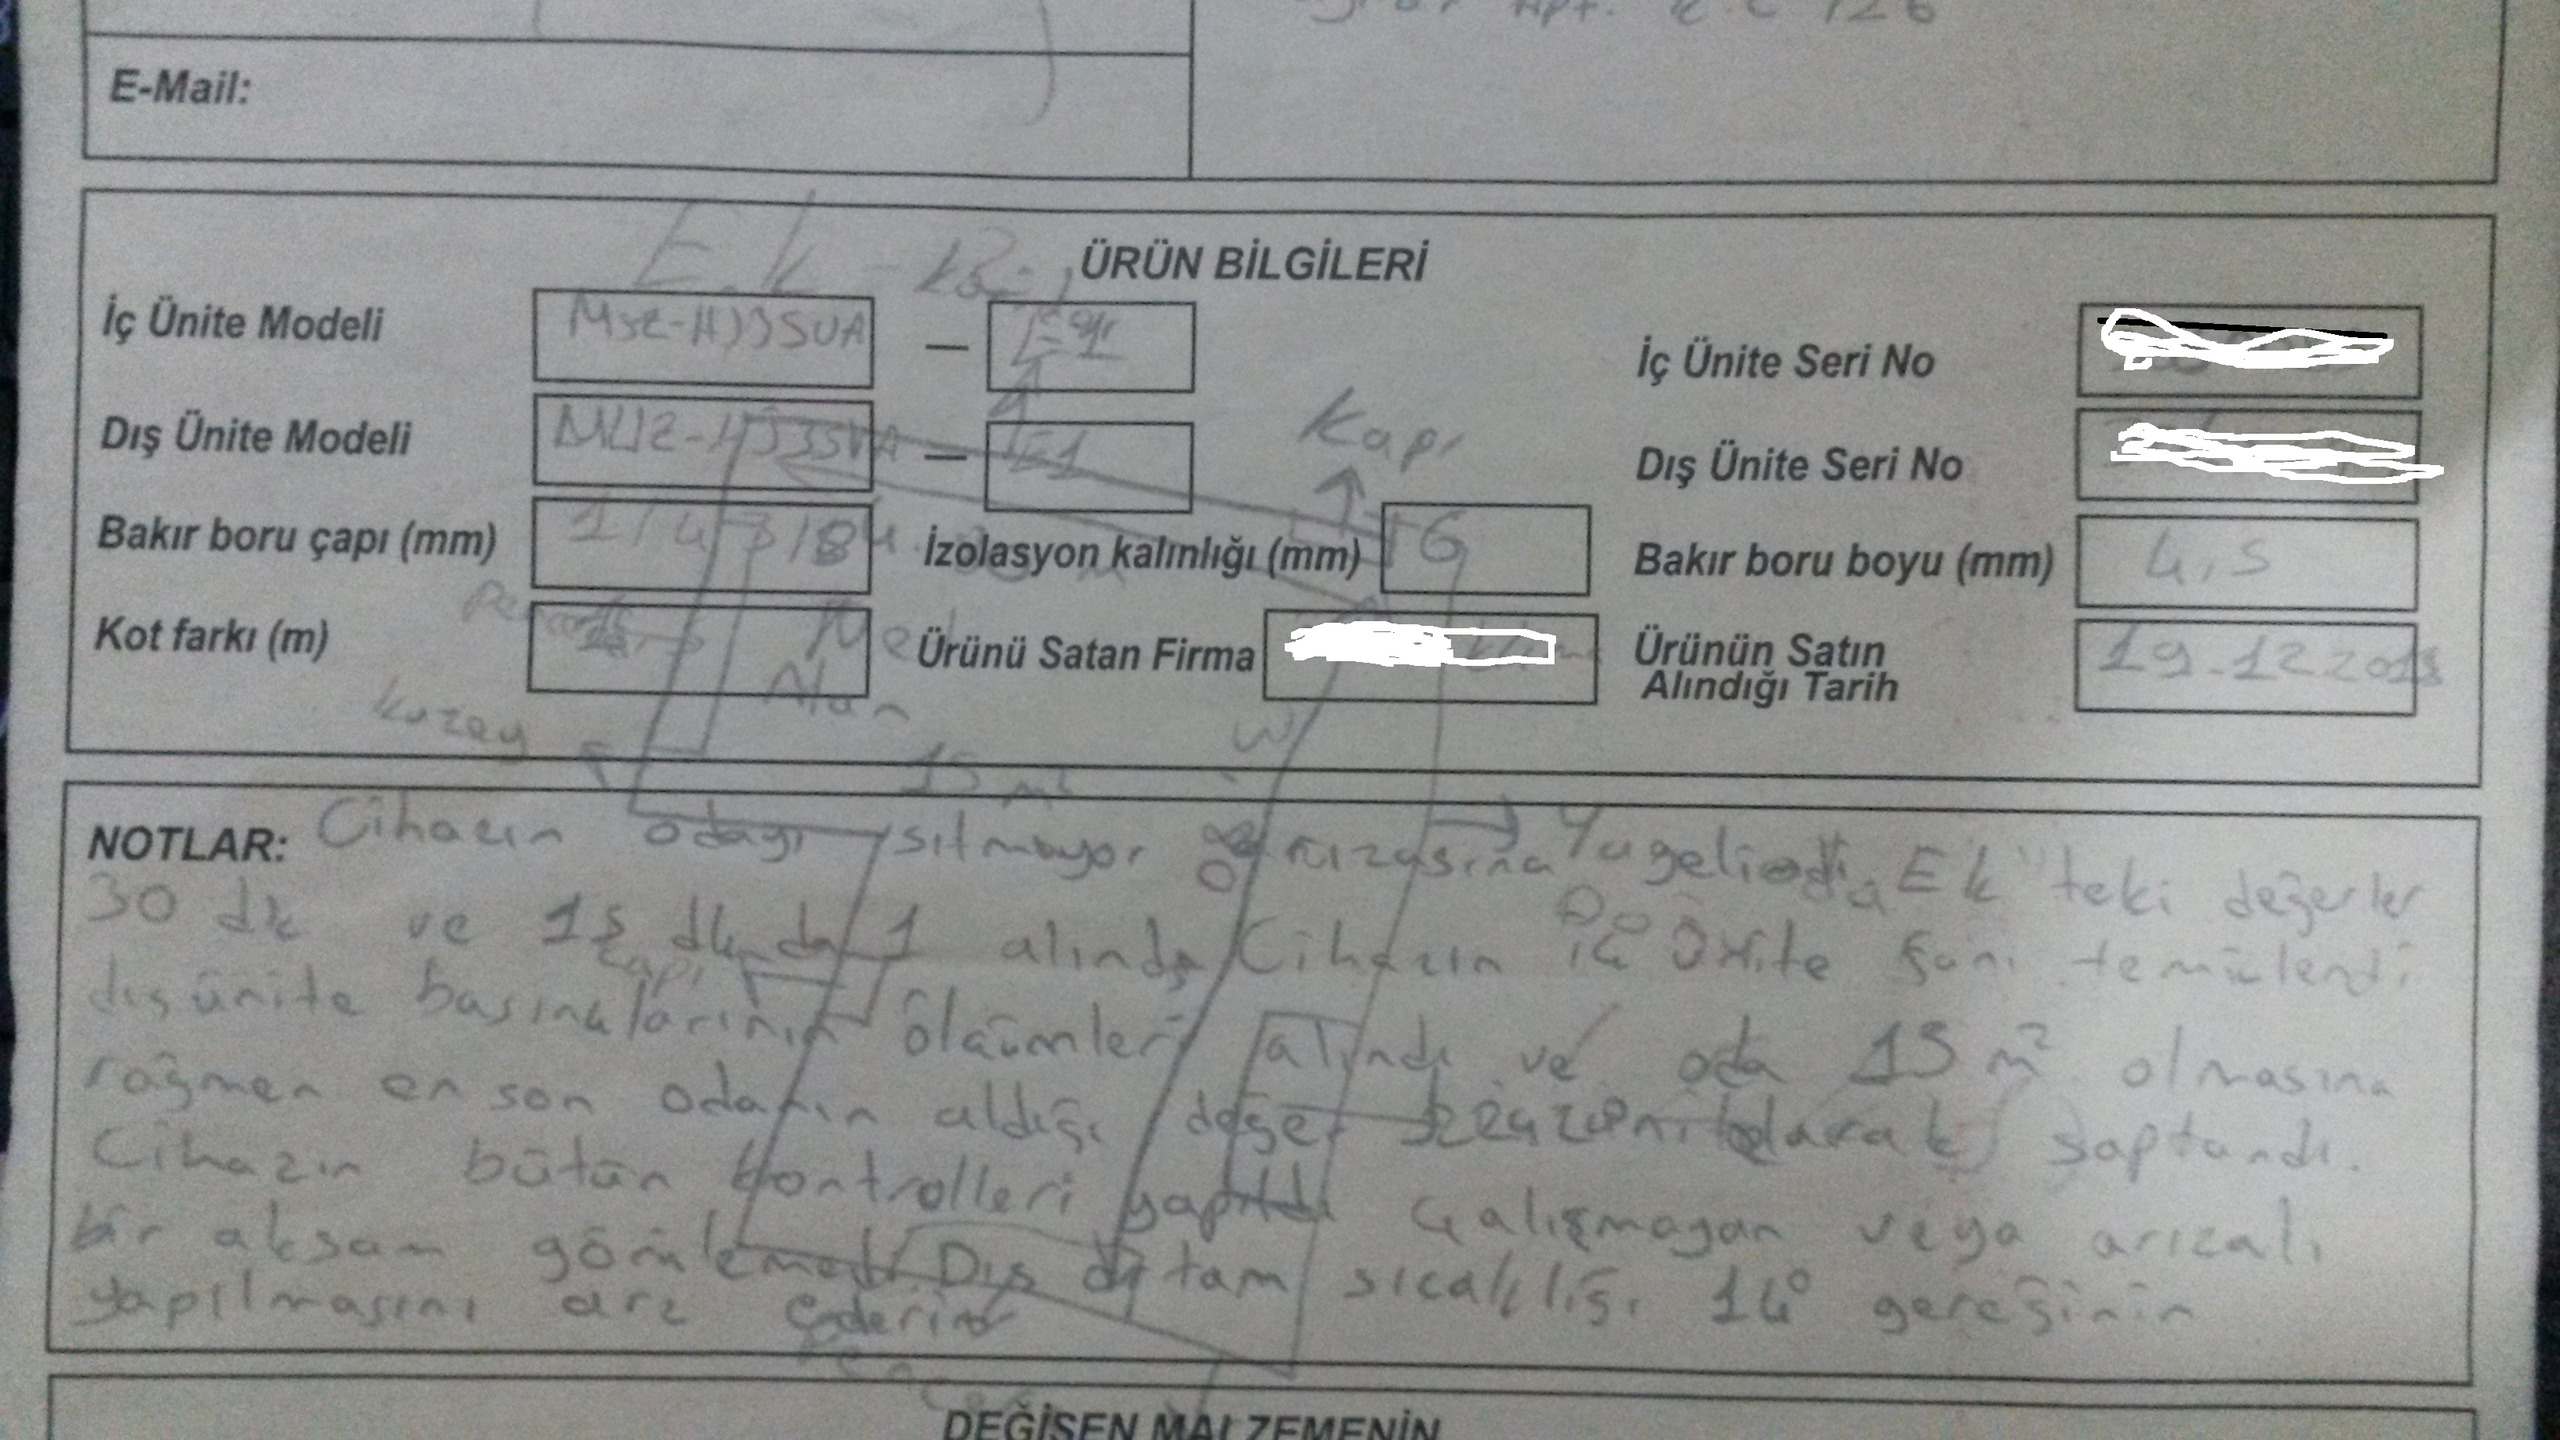 E-Mail:
ÜRÜN BİLGİLERİ
İç Ünite Modeli MSZ-HJ35VA — E1
İç Ünite Seri No
Dış Ünite Modeli MUZ-HJ35VA — E1
Dış Ünite Seri No
Kapı
Bakır boru çapı (mm) 1/4 3/8 İzolasyon kalınlığı (mm) 6 Bakır boru boyu (mm) 4,5
Kot farkı (m) Ürünü Satan Firma Ürünün Satın Alındığı Tarih 19.12.2013
Net
Alan
Kuzey
15 m²
NOTLAR: Cihazın odayı ısıtmıyor arızasına gelindi Ek'teki değerler
30 dk ve 15 dk da 1 alındı Cihazın iç ünite fanı temizlendi
dış ünite basınçlarının ölçümleri alındı ve oda 15 m² olmasına
rağmen en son odanın aldığı değer olarak saptandı.
Cihazın bütün kontrolleri yapıldı çalışmayan veya arızalı
bir aksam görülemedi Dış ortam sıcaklığı 14° gereğinin
yapılmasını arz ederim
DEĞİŞEN MALZEMENİN